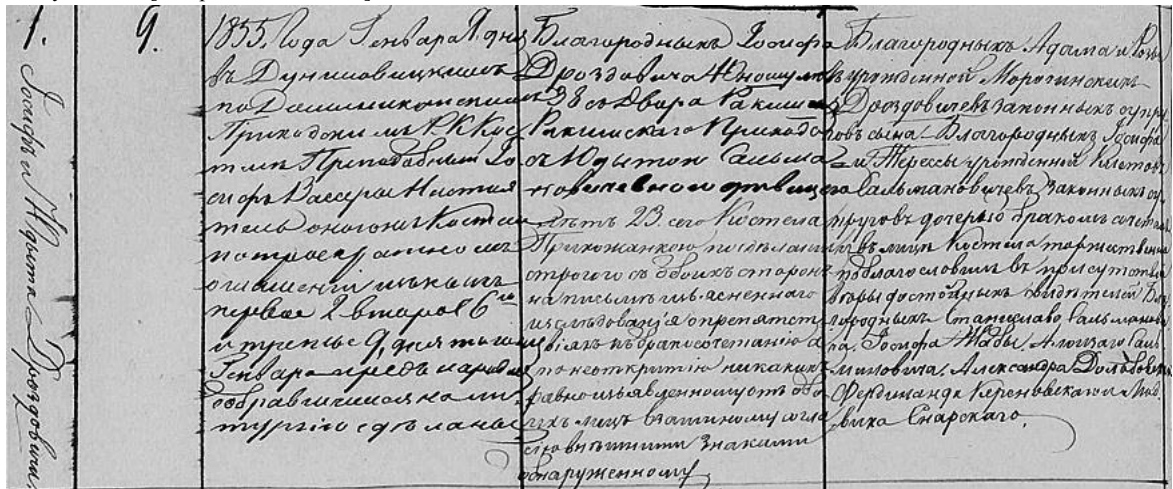 1.
Іосифъ и Юдыта Дроздовичи
9.
1855 Года Генваря 9 дня
въ Дуниловицкомъ
по Доминиканскомъ
Приходскомъ Р. К. Кос
телѣ Преподобный Іо
сифъ
тель онагожъ Костела
по троекратномъ
оглашеніи изъ коихъ
первое 2 второе 6го
и третье 9, дня тогожъ
Генваря предъ народомъ
собравшимся на ли
тургію сдѣланы
Благородныхъ Іосифа
Дроздовича Юношу лѣтъ
38 съ Двора
Прихода
съ Юдытою Сальма
новичевною дѣвицею
лѣтъ 23 сего Костела
Прихожанкою по сдѣланіи
строгого съ обоихъ сторонъ
на письмѣ изъясненнаго
изслѣдованія о препятст
віяхъ къ бракосочетанію а
по неоткрытію никакихъ
равно изъявленному отъ обо
ихъ лицъ взаимному согла
сію внѣшними знаками
обнаруженному
Благородныхъ Адама и
урожденной
Дроздовичевъ законныхъ супру
говъ сына – Благородныхъ Іосифа
и Терессы урожденной
Сальмановичевъ законныхъ су
пруговъ дочерью бракомъ сочеталъ
и въ лицѣ Костела торжественно
поблагословилъ въ присутствіи
вѣры достойныхъ свидѣтелей Бла
городныхъ Станислава Сальманови
ча, Іосифа Жабы, Алоизаго Саль
мановича, Александра
Фердинанда и Люд
вика Снарскаго.